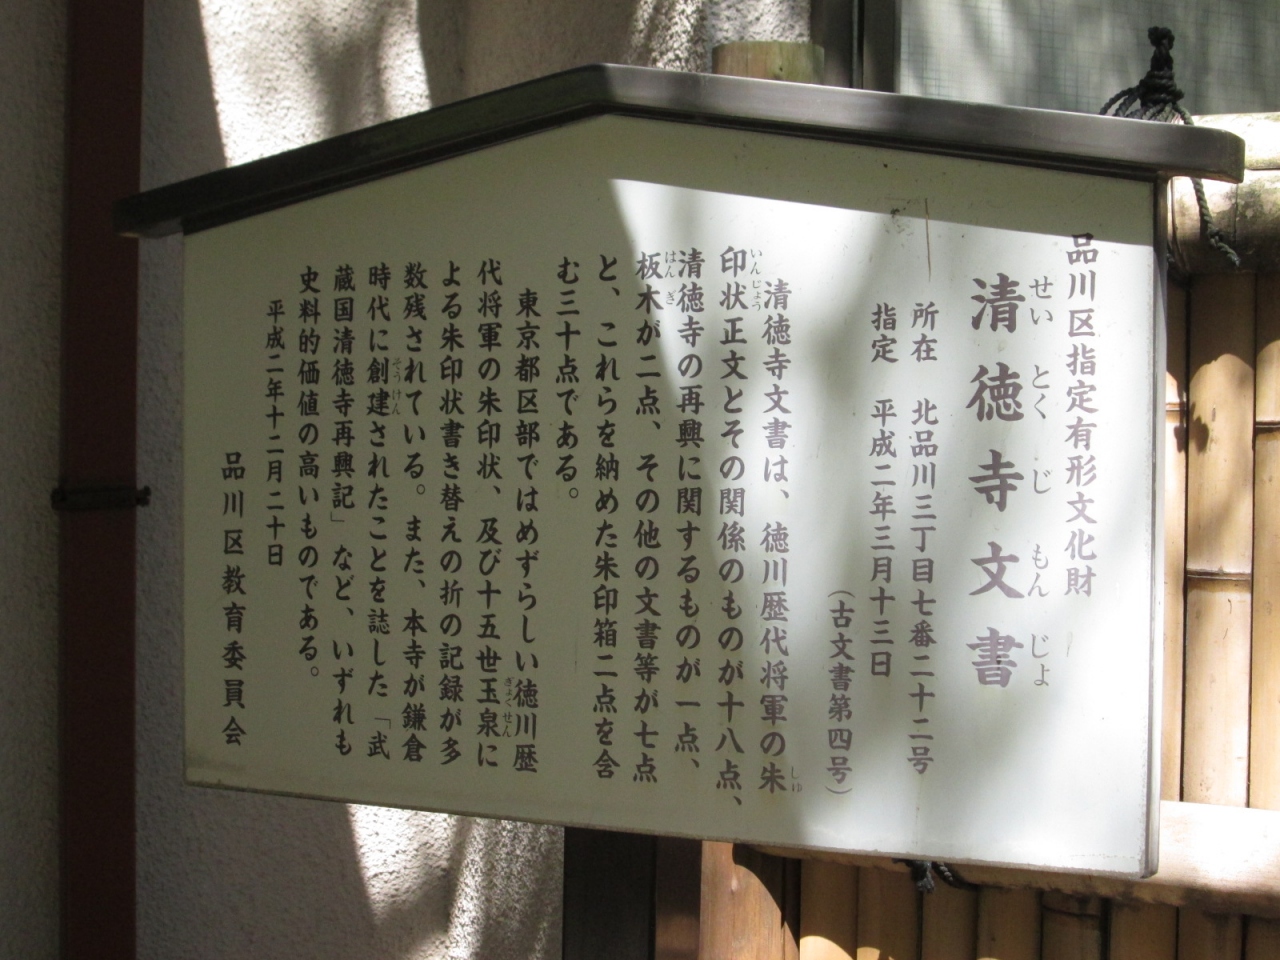 品川区指定有形文化財
せいとくじもんじょ
清徳寺文書
所在　北品川三丁目七番二十二号
指定　平成二年三月十三日
（古文書第四号）
清徳寺文書は、徳川歴代将軍の朱
しゅ
いんじょう
印状正文とその関係のものが十八点、
清徳寺の再興に関するものが一点、
はんぎ
板木が二点、その他の文書等が七点
と、これらを納めた朱印箱二点を含
む三十点である。
東京都区部ではめずらしい徳川歴
代将軍の朱印状、及び十五世玉泉に
ぎょくせん
よる朱印状書き替えの折の記録が多
数残されている。また、本寺が鎌倉
そうけん
時代に創建されたことを誌した「武
蔵国清徳寺再興記」など、いずれも
史料的価値の高いものである。
平成二年十二月二十日
品川区教育委員会